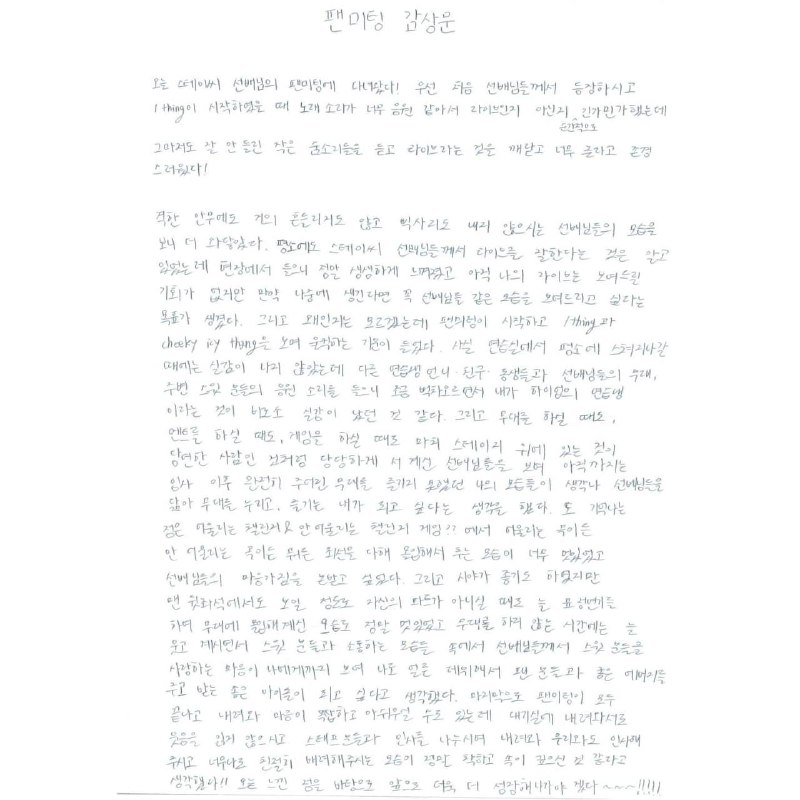 팬미팅 감상문
오늘 스테이씨 선배님의 팬미팅에 다녀왔다! 우선 처음 선배님들께서 등장하시고
1 thing이 시작하였을 때 노래 소리가 너무 음원 같아서 라이브인지 아닌지 긴가민가했는데
순간적으로
그마저도 잘 안 들린 작은 숨소리들을 듣고 라이브라는 것을 깨닫고 너무 놀라고 존경
스러웠다!
격한 안무에도 거의 흔들리지도 않고 삑사리도 내지 않으시는 선배님들의 모습을
보니 더 와닿았다. 평소에도 스테이씨 선배님들께서 라이브를 잘한다는 것은 알고
있었는데 현장에서 들으니 정말 생생하게 느껴졌고 아직 나의 라이브는 보여드릴
기회가 없지만 만약 나중에 생긴다면 꼭 선배님들 같은 모습을 보여드리고 싶다는
목표가 생겼다. 그리고 왜인지는 모르겠는데 팬미팅이 시작하고 1 thing과
cheeky icy thang을 보며 울컥하는 기분이 들었다. 사실 연습실에서 평소에 스쳐지나갈
때에는 실감이 나지 않았는데 다른 연습생 언니·친구·동생들과 선배님들의 무대,
주변 스윗 분들의 응원 소리를 들으니 조금 벅차오르면서 내가 하이업의 연습생
이라는 것이 비로소 실감이 났던 것 같다. 그리고 무대를 하실 때도,
멘트를 하실 때도, 게임을 하실 때도 마치 스테이지 위에 있는 것이
당연한 사람인 것처럼 당당하게 서 계신 선배님들을 보며 아직까지는
입사 이후 완전히 주어진 무대를 즐기지 못했던 나의 모습들이 생각나 선배님들을
닮아 무대를 누리고, 즐기는 내가 되고 싶다는 생각을 했다. 또 기억나는
점은 어울리는 챌린지 & 안 어울리는 챌린지 게임?? 에서 어울리는 곡이든
안 어울리는 곡이든 뭐든 최선을 다해 몰입해서 추는 모습이 너무 멋있었고
선배님들의 마음가짐을 본받고 싶었다. 그리고 시야가 좋기도 하였지만
맨 뒷좌석에서도 보일 정도로 자신의 파트가 아니실 때도 늘 표정연기를
하며 무대에 몰입해 계신 모습도 정말 멋있었고 무대를 하지 않는 시간에는 늘
웃고 계시면서 스윗 분들과 소통하는 모습들 속에서 선배님들께서 스윗 분들을
사랑하는 마음이 나에게까지 보여 나도 얼른 데뷔해서 팬 분들과 좋은 에너지를
주고 받는 좋은 아이돌이 되고 싶다고 생각했다. 마지막으로 팬미팅이 모두
끝나고 내려와 마음이 복잡하고 아쉬우실 수도 있는데 대기실에 내려와서도
웃음을 잃지 않으시고 스태프분들과 인사를 나누시며 내려와 우리와도 인사해
주시고 너무나도 친절히 배려해주시는 모습이 정말 착하고 속이 깊으신 것 같다고
생각했다!! 오늘 느낀 점을 바탕으로 앞으로 더욱 더 성장해나가야 겠다 ~~~!!!!!